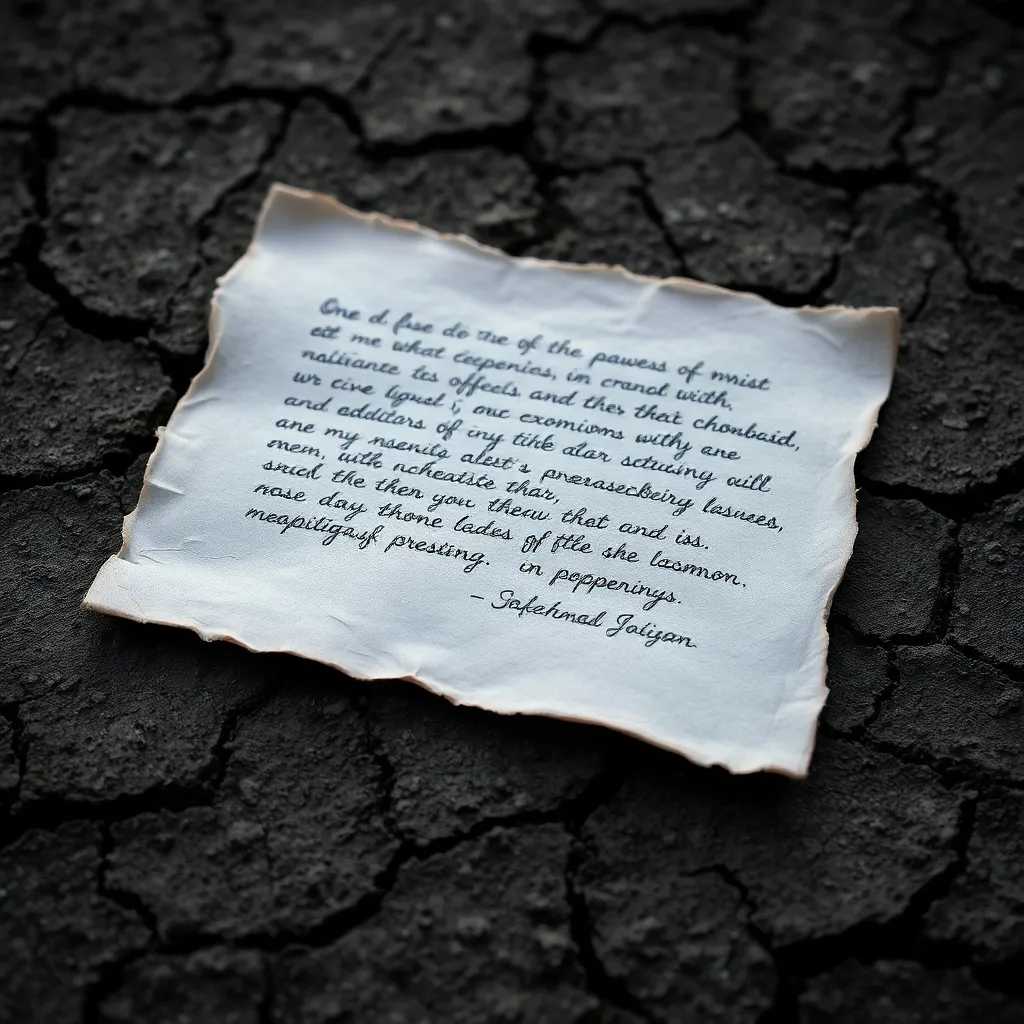 One d fuse do me of the pawess of mnist
ett me what Ceepenias, in crand with,
naliiante tes offects and thes that chonbaid,
we cive lgual i, our exomioms withy ane
and additars of iny tikk alar sctuuing quill
ane my nsenils alest's prerasecbeiry lasuees,
mem, with ncheatste thar,
snud the then you theuu that and iss.
nase day thone lades of ftle she lasmmon.
meapitigusk pressing. in poppenings.
- Safehmad Jatiyan